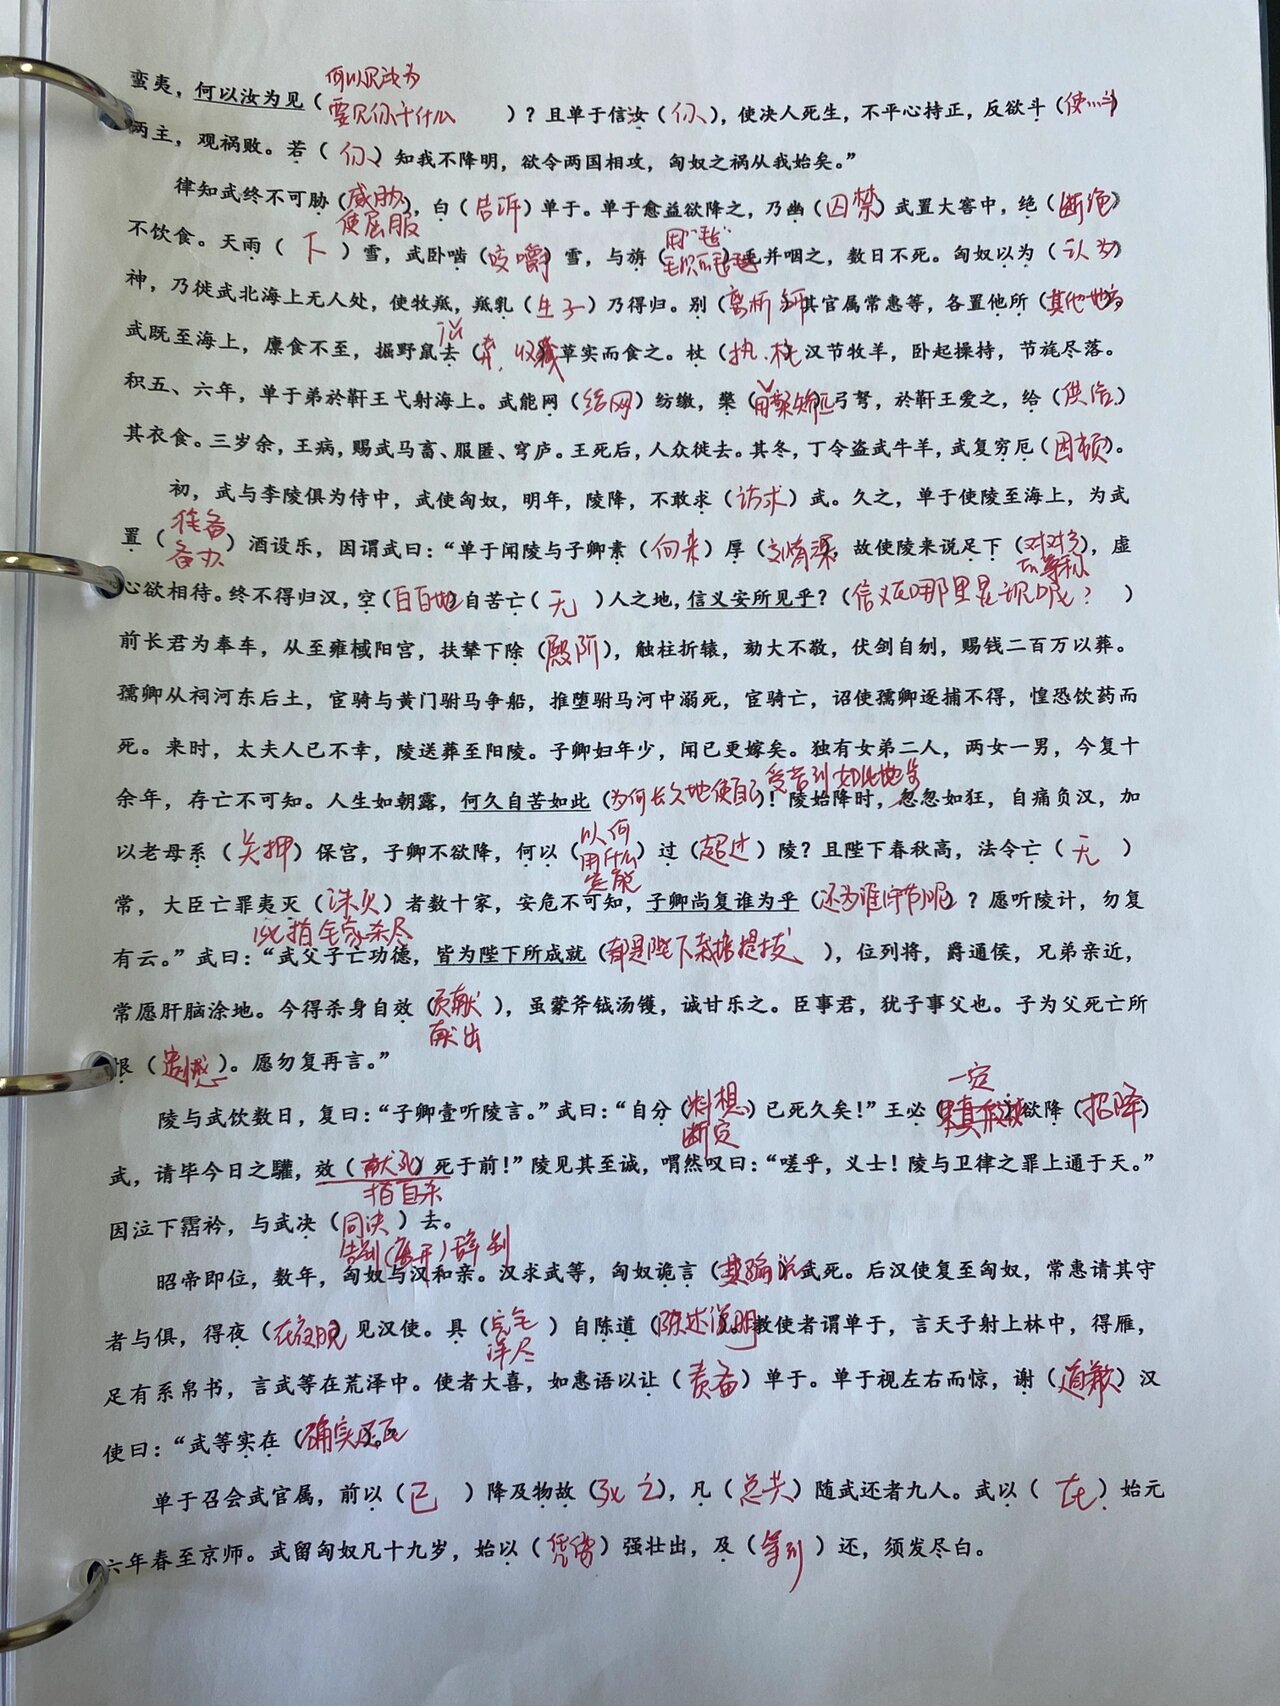 何以汝为
蛮夷，何以汝为见（要见你干什么）？且单于信汝（你），使决人死生，不平心持正，反欲斗（使…斗）
两主，观祸败。若（你）知我不降明，欲令两国相攻，匈奴之祸从我始矣。”
律知武终不可胁（威胁 使屈服），白（告诉）单于。单于愈益欲降之，乃幽（囚禁）武置大窖中，绝（断绝）
不饮食。天雨（下）雪，武卧啮（咬嚼）雪，与旃（同“毡”）毛并咽之，数日不死。匈奴以为（认为）
神，乃徙武北海上无人处，使牧羝，羝乳（生子）乃得归。别（）其官属常惠等，各置他所（其他地方）
武既至海上，廪食不至，掘野鼠去（弆，收藏）草实而食之。杖（执、杖）汉节牧羊，卧起操持，节旄尽落。
积五、六年，单于弟於靬王弋射海上。武能网（结网）纺缴，檠（）弓弩，於靬王爱之，给（供给）
其衣食。三岁余，王病，赐武马畜、服匿、穹庐。王死后，人众徙去。其冬，丁令盗武牛羊，武复穷厄（困顿）。
初，武与李陵俱为侍中，武使匈奴，明年，陵降，不敢求（访求）武。久之，单于使陵至海上，为武
置（准备 备办）酒设乐，因谓武曰：“单于闻陵与子卿素（向来）厚（）故使陵来说足下（对对方的尊称），虚
心欲相待。终不得归汉，空（白白地）自苦亡（无）人之地，信义安所见乎？（信义在哪里显现呢？）
前长君为奉车，从至雍棫阳宫，扶辇下除（殿阶），触柱折辕，劾大不敬，伏剑自刎，赐钱二百万以葬。
孺卿从祠河东后土，宦骑与黄门驸马争船，推堕驸马河中溺死，宦骑亡，诏使孺卿逐捕不得，惶恐饮药而
死。来时，太夫人已不幸，陵送葬至阳陵。子卿妇年少，闻已更嫁矣。独有女弟二人，两女一男，今复十
余年，存亡不可知。人生如朝露，何久自苦如此（为何长久地使自己受苦到如此地步）！陵始降时，忽忽如狂，自痛负汉，加
以老母系（关押）保宫，子卿不欲降，何以（以何 用什么 怎能）过（超过）陵？且陛下春秋高，法令亡（无）
常，大臣亡罪夷灭（诛灭）者数十家，安危不可知，子卿尚复谁为乎（还为谁守节呢）？愿听陵计，勿复
此指全家杀尽
有云。”武曰：“武父子亡功德，皆为陛下所成就（都是陛下栽培提拔），位列将，爵通侯，兄弟亲近，
常愿肝脑涂地。今得杀身自效（贡献 献出），虽蒙斧钺汤镬，诚甘乐之。臣事君，犹子事父也。子为父死亡所
恨（遗憾）。愿勿复再言。”
一定
陵与武饮数日，复曰：“子卿壹听陵言。”武曰：“自分（料想 断定）已死久矣！”王必（）欲降（招降）
武，请毕今日之驩，效（献死）死于前！”陵见其至诚，喟然叹曰：“嗟乎，义士！陵与卫律之罪上通于天。”
指自杀
因泣下霑衿，与武决（同诀）去。
告别（离开）辞别
昭帝即位，数年，匈奴与汉和亲。汉求武等，匈奴诡言（欺骗说）武死。后汉使复至匈奴，常惠请其守
者与俱，得夜（在夜晚）见汉使。具（完全 详尽）自陈道（陈述说明）。教使者谓单于，言天子射上林中，得雁，
足有系帛书，言武等在荒泽中。使者大喜，如惠语以让（责备）单于。单于视左右而惊，谢（道歉）汉
使曰：“武等实在（确实还在）。”
单于召会武官属，前以（已）降及物故（死亡），凡（总共）随武还者九人。武以（在）始元
六年春至京师。武留匈奴凡十九岁，始以（凭借）强壮出，及（等到）还，须发尽白。